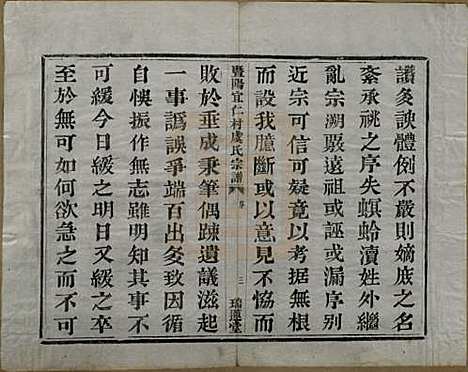 譜多諛體例不嚴則嫡庶之名
紊承祧之序失螟蛉瀆姓外繼
亂宗溯嚴遠祖或誣或漏序別
近宗可信可疑竟以考據無根
而設我臆斷或以意見不恊而
暨陽宜仁村虞氏宗譜 序 三 瑞蓮堂
敗於垂成秉筆偶疎遺議滋起
一事譌誤爭端百出爻致因循
自悞振作有志雖明知其事不
可緩今日緩之明日又緩之卒
至於無可如何欲急之而不可